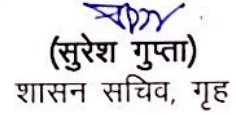 (सुरेश गुप्ता)
शासन सचिव, गृह